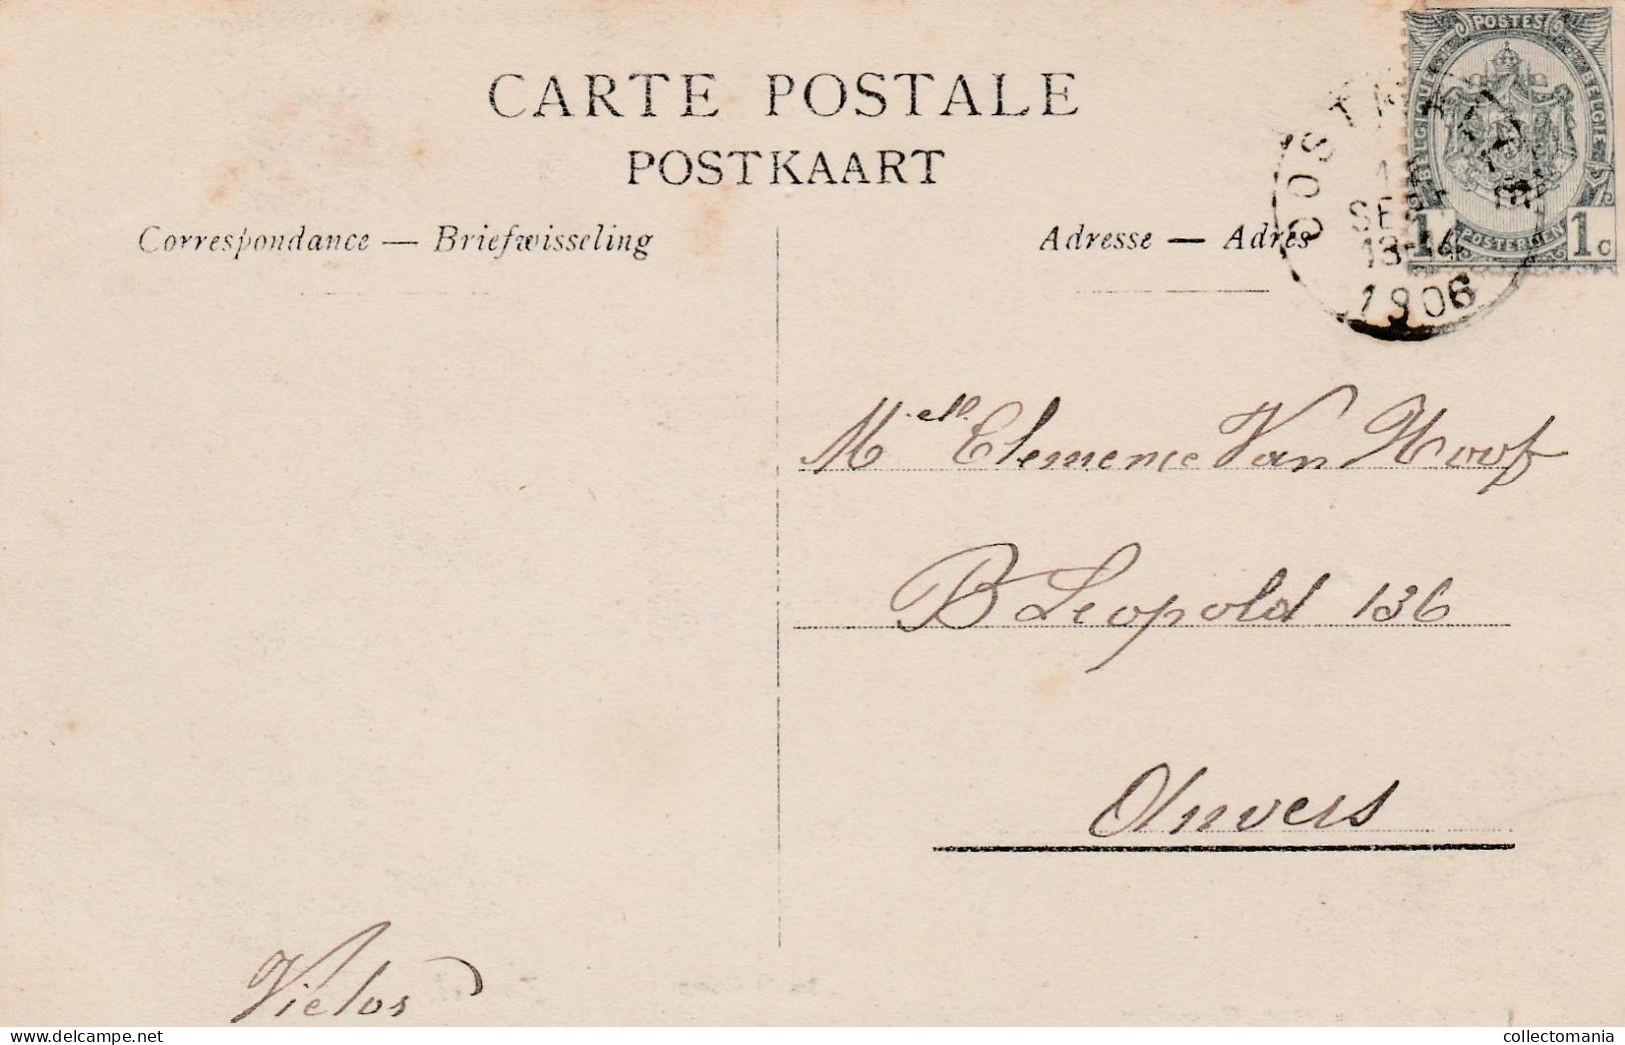 CARTE POSTALE
POSTKAART
Correspondance — Briefwisseling
Adresse — Adres
POSTES
BELGIQUE
BELGIË
POSTERIJEN
1
1c
13-14
1906
Melle Clemence Van Hoof
B Leopold 136
Anvers
www.delcampe.net
collectomania